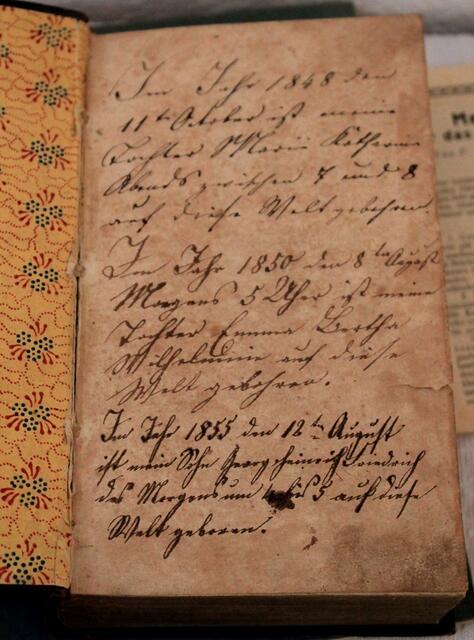 Im Jahr 1848 den
11te October ist meine
Tochter Marie Katherine
Abends zwischen 7 und 8
auf diese Welt gebohren.
Im Jahr 1850 den 8te August
Morgens 5 Uher ist meine
Tochter Emma Bertha
Wilhelmine auf diese
Welt gebohren.
Im Jahr 1855 den 12te August
ist mein Sohn Georg Heinrich Friedrich
des Morgens um 4 bis 5 auf diese
Welt geboren.